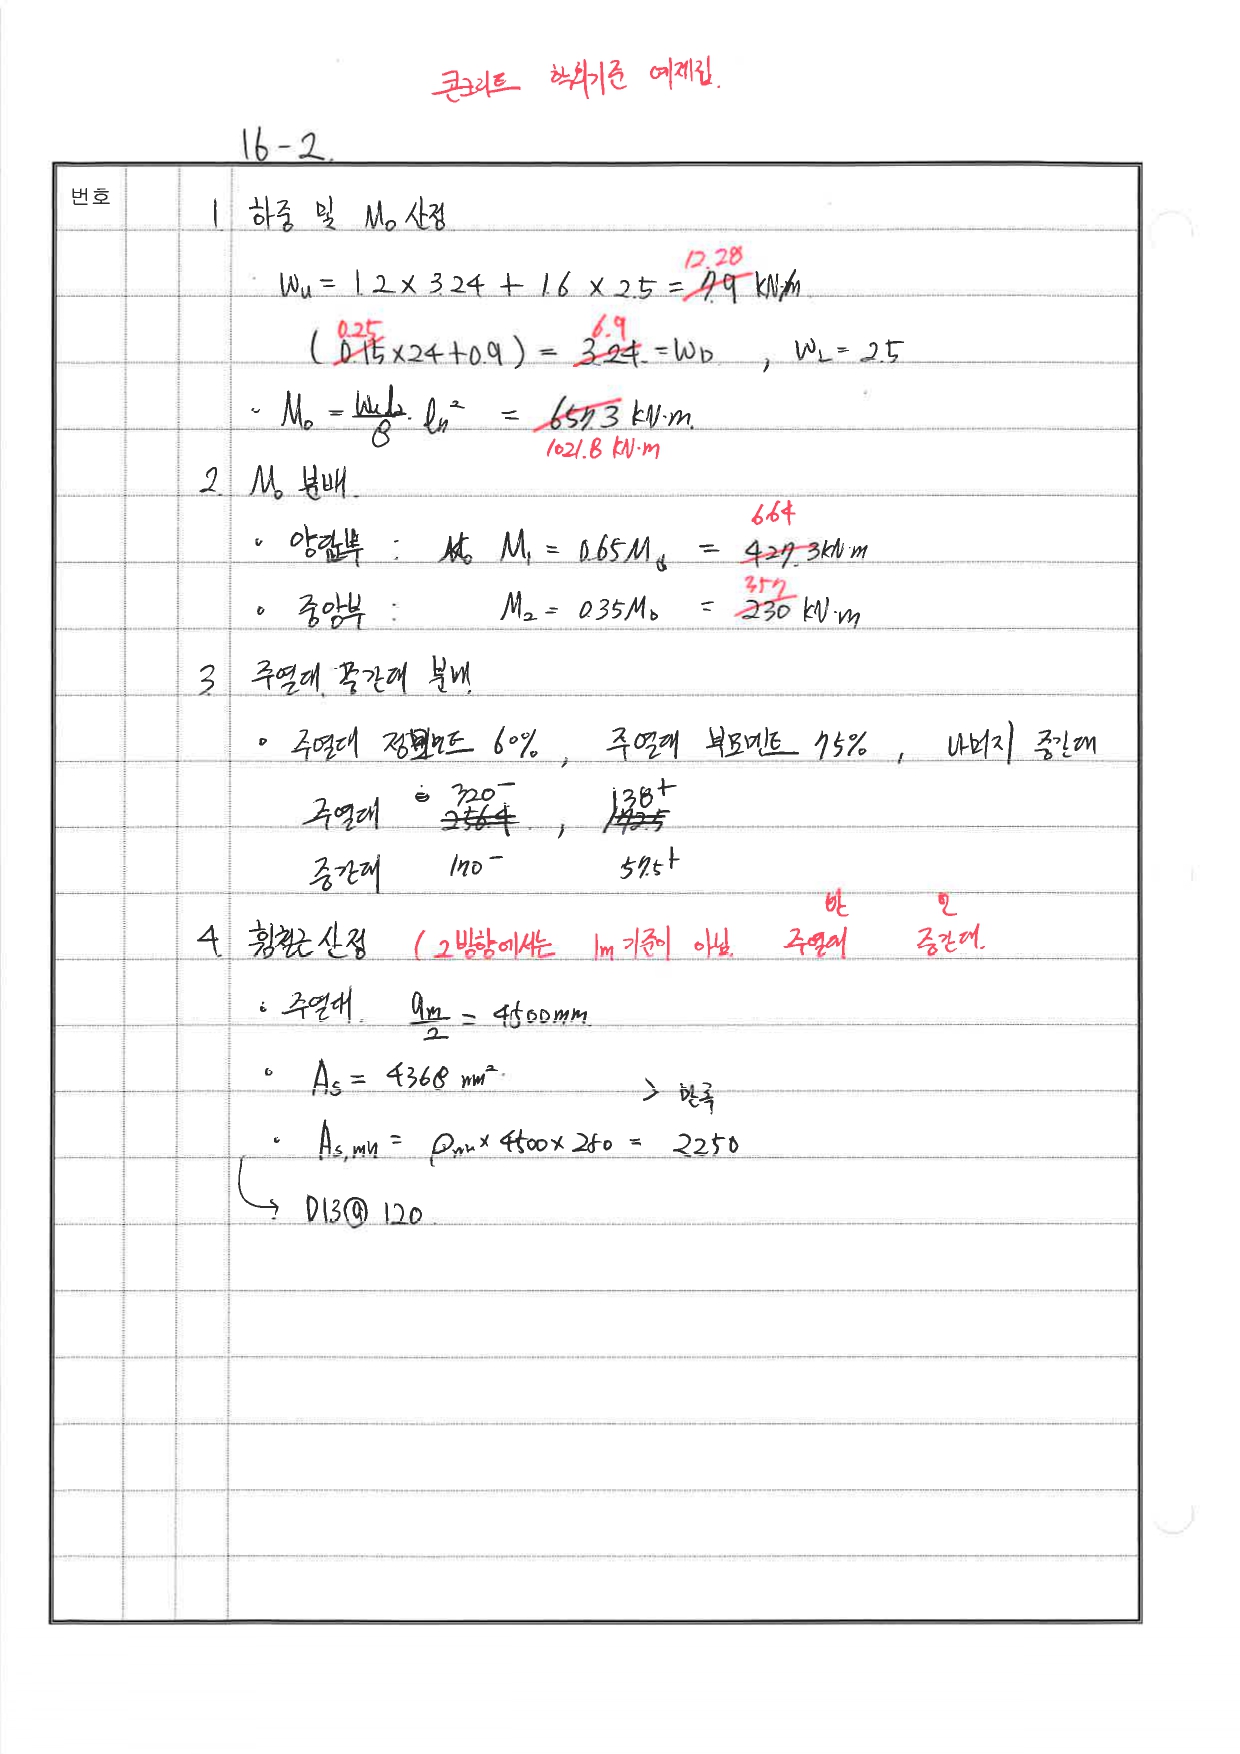 콘크리트 학회기준 예제집.
16-2.
번호
1 하중 및 M₀ 산정
12.28
· Wu = 1.2 × 3.24 + 1.6 × 2.5 = 7.9 kN/m
0.25 6.9
(0.15×24+0.9) = 3.24 = W_D , W_L = 2.5
· M₀ = Wu l₂/8 · ln² = 657.3 kN·m.
1021.8 kN·m
2. M₀ 분배.
664
· 양단부 : M₁ = 0.65M₀ = 427.3 kN·m
357
· 중앙부 : M₂ = 0.35M₀ = 230 kN·m
3. 주열대, 중간대 분배.
· 주열대 정모멘트 60%, 주열대 부모멘트 75%, 나머지 중간대
320⁻ 138⁺
주열대 : 256.4 , 172.5
중간대 170⁻ 57.5⁺
반 인
4. 휨철근 산정 (2방향에서는 1m 기준이 아님. 주열대 중간대.
· 주열대. 9m/2 = 4500mm
· As = 4368 mm²
> 만족
· As,min = ρmin × 4500 × 250 = 2250
→ D13@120